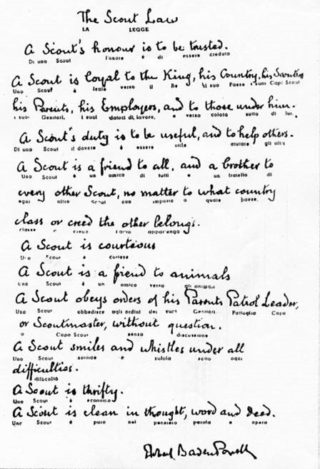 The Scout Law
LA LEGGE
A Scout's honour is to be trusted.
Di uno Scout l'onore è di essere creduto
A Scout is loyal to the King, his Country, his Scouters
Uno Scout è leale verso il Re il suo Paese i suoi Capi Scout
his Parents, his Employers, and to those under him.
i suoi Genitori, i suoi datori di lavoro, e verso coloro sotto di lui.
A Scout's duty is to be useful, and to help others.
Di uno Scout il dovere è essere utile gli altri
A Scout is a friend to all, and a brother to
Uno Scout è un amico di tutti e un fratello di
every other Scout, no matter to what country
ogni altro Scout non importa a quale paese
class or creed the other belongs.
classe o credo l'altro appartenga
A Scout is courteous
Uno Scout è cortese
A Scout is a friend to animals
Uno Scout è un amico verso gli animali
A Scout obeys orders of his Parents Patrol Leader,
Uno Scout obbedisce agli ordini dei suoi Genitori Pattuglia Capo
or Scoutmaster, without question.
o Capo Scout senza discussione
A Scout smiles and whistles under all
Uno Scout sorride e zufola sotto ogni
difficulties.
difficoltà
A Scout is thrifty.
Uno Scout è economo
A Scout is clean in thought, word and deed.
Uno Scout è puro nel pensiero parola e opera
Robert Baden Powell